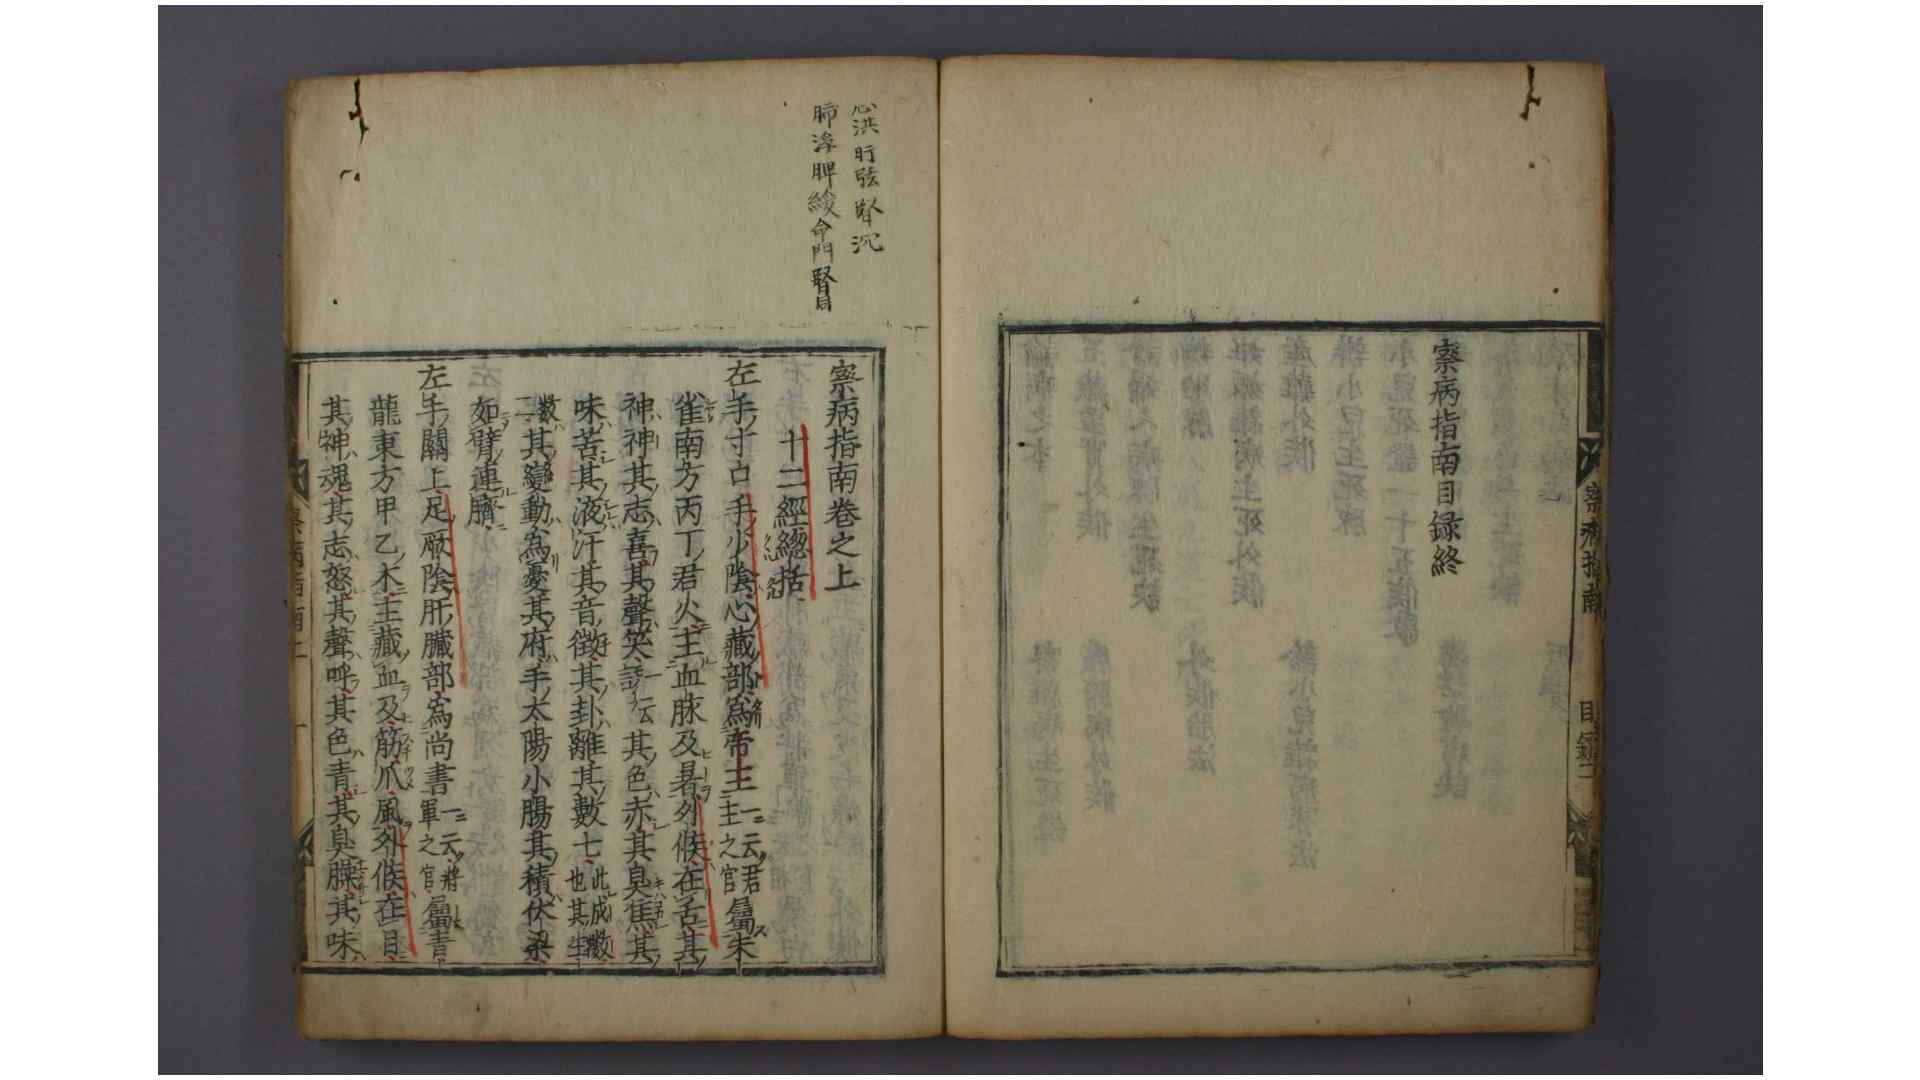 察病指南目録終
察病指南
目録二
心洪肝弦腎沉
肺浮脾緩命門腎同
察病指南卷之上
十二經總括
左手寸口手少陰心藏部爲帝王一云君主之官屬朱
雀南方丙丁君火主血脉及暑外候在舌其
神神其志喜其聲笑一云其色赤其臭焦其
味苦其液汗其音徵其卦離其數七此成數也其生
數二其變動爲憂其府手太陽小腸其積伏梁
如臂連臍
左手關上足厥陰肝臓部爲尚書一云將軍之官屬青
龍東方甲乙木主藏血及筋爪風外候在目
其神魂其志怒其聲呼其色青其臭臊其味
察病指南上